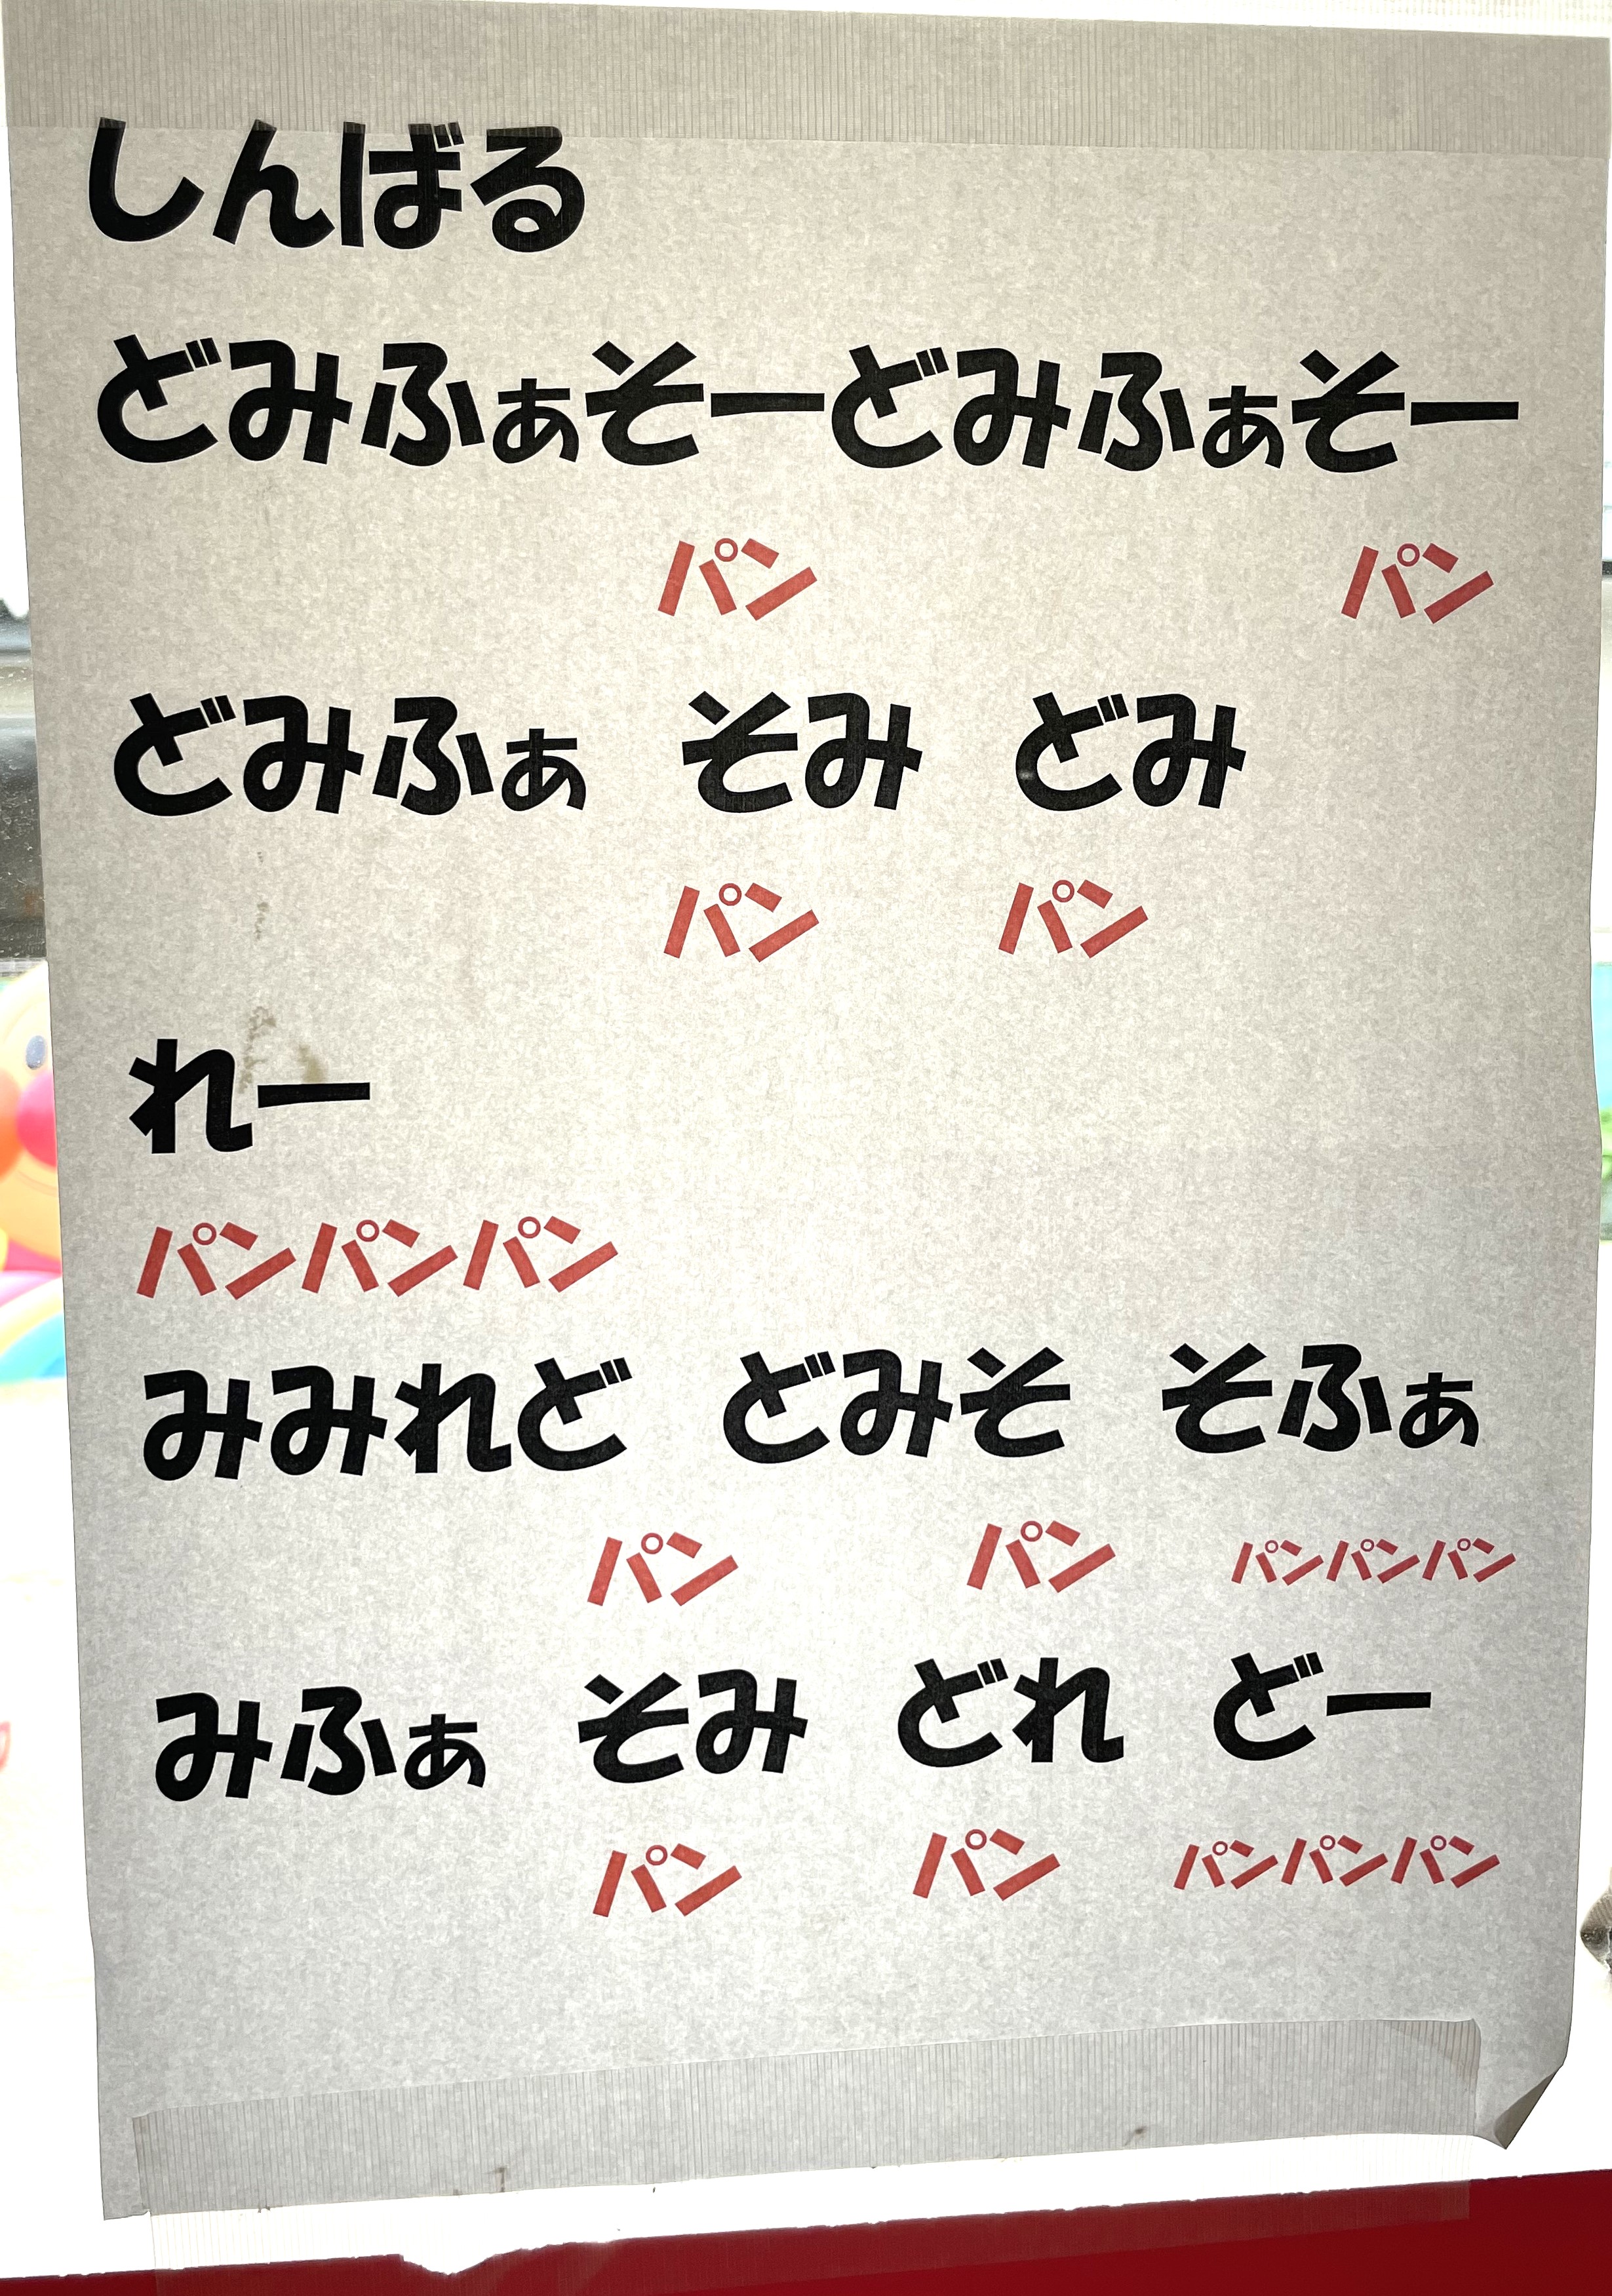 しんばる
どみふぁそーどみふぁそー
パン パン
どみふぁ そみ どみ
パン パン
れー
パンパンパン
みみれど どみそ そふぁ
パン パン パンパンパン
みふぁ そみ どれ どー
パン パン パンパンパン